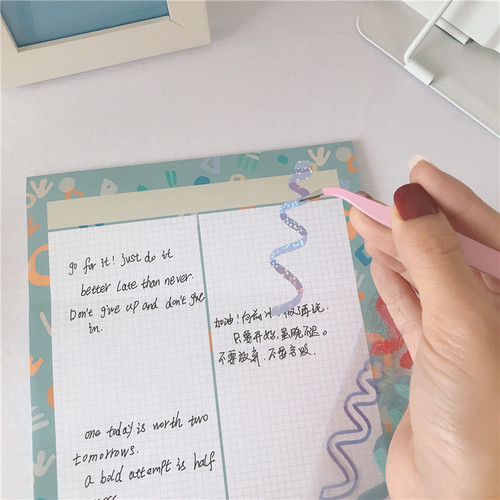 go for it! just do it
better late than never.
Don't give up and don't give
in.
one today is worth two
tomorrows.
a bold attempt is half
加油!向前冲,做再说.
只要开始,虽晚不迟。
不要放弃,不要言败.